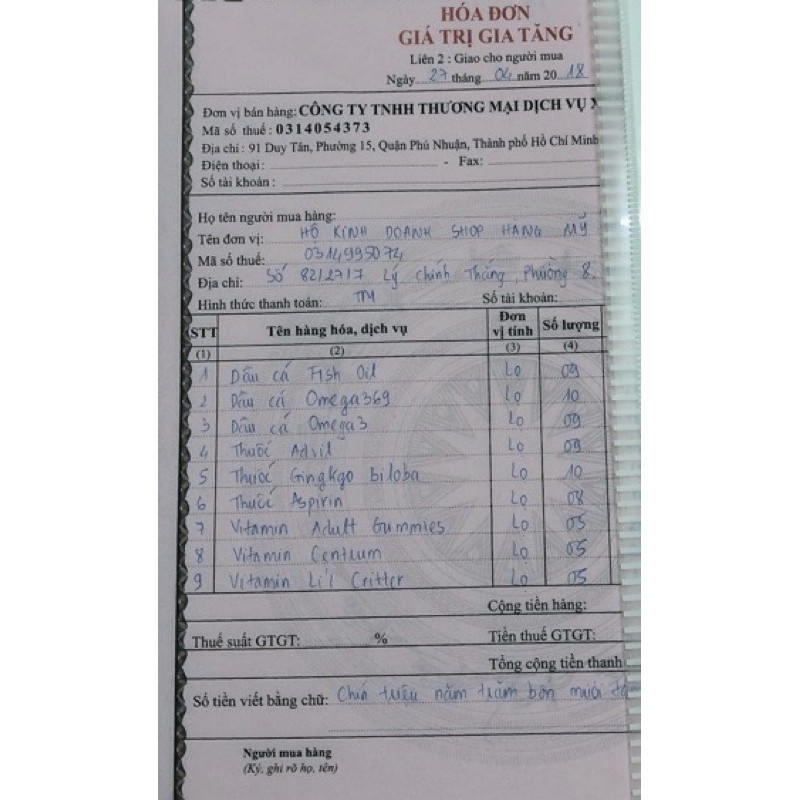 HÓA ĐƠN
GIÁ TRỊ GIA TĂNG
Liên 2 : Giao cho người mua
Ngày 27 tháng 04 năm 2018
Đơn vị bán hàng: CÔNG TY TNHH THƯƠNG MẠI DỊCH VỤ X
Mã số thuế : 0314054373
Địa chỉ : 91 Duy Tân, Phường 15, Quận Phú Nhuận, Thành phố Hồ Chí Minh
Điện thoại : - Fax:
Số tài khoản :
Họ tên người mua hàng:
Tên đơn vị: HỘ KINH DOANH SHOP HÀNG MỸ
Mã số thuế: 0314995074
Địa chỉ: Số 82/27/7 Lý Chính Thắng, Phường 8.
Hình thức thanh toán: TM Số tài khoản:
STT Tên hàng hóa, dịch vụ Đơn vị tính Số lượng
(1) (2) (3) (4)
1 Dầu cá Fish Oil Lọ 09
2 Dầu cá Omega369 Lọ 10
3 Dầu cá Omega3 Lọ 09
4 Thuốc Advil Lọ 09
5 Thuốc Gingkgo biloba Lọ 10
6 Thuốc Aspirin Lọ 08
7 Vitamin Adult Gummies Lọ 05
8 Vitamin Centrum Lọ 05
9 Vitamin Li'l Critter Lọ 05
Cộng tiền hàng:
Thuế suất GTGT: % Tiền thuế GTGT:
Tổng cộng tiền thanh
Số tiền viết bằng chữ: Chín triệu năm trăm bốn mươi
Người mua hàng
(Ký, ghi rõ họ, tên)